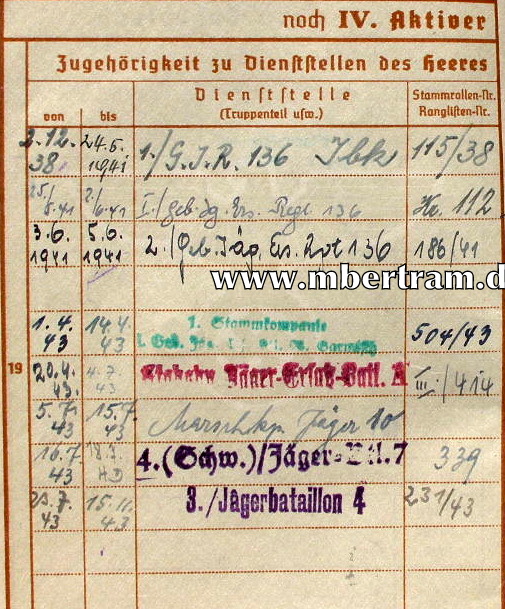 noch IV. Aktiver
Zugehörigkeit zu Dienststellen des Heeres
von bis Dienststelle (Truppenteil usw.) Stammrollen-Nr. Ranglisten-Nr.
2.12. 38 24.5. 1941 1./G.J.R. 136 Jbk 115/38
25./5.41 2./6.41 I./Geb. Jg. Ers. Regt. 136 112
3.6. 1941 5.6. 1941 2./Geb. Jäg. Ers. 136 186/41
www.mbertram.d
1.4. 43 14.4. 43 1. Stammkompanie 504/43
19 20.4. 43. 4.7. 43 Jäger-Ersatz-Batl. A III/414
5.7. 43 15.7. 43 Marschkp. Jäger 10
16.7. 43 4.(Schw.)/Jäger-Btl.7 339
43 15.11. 43 3./Jägerbataillon 4 231/43